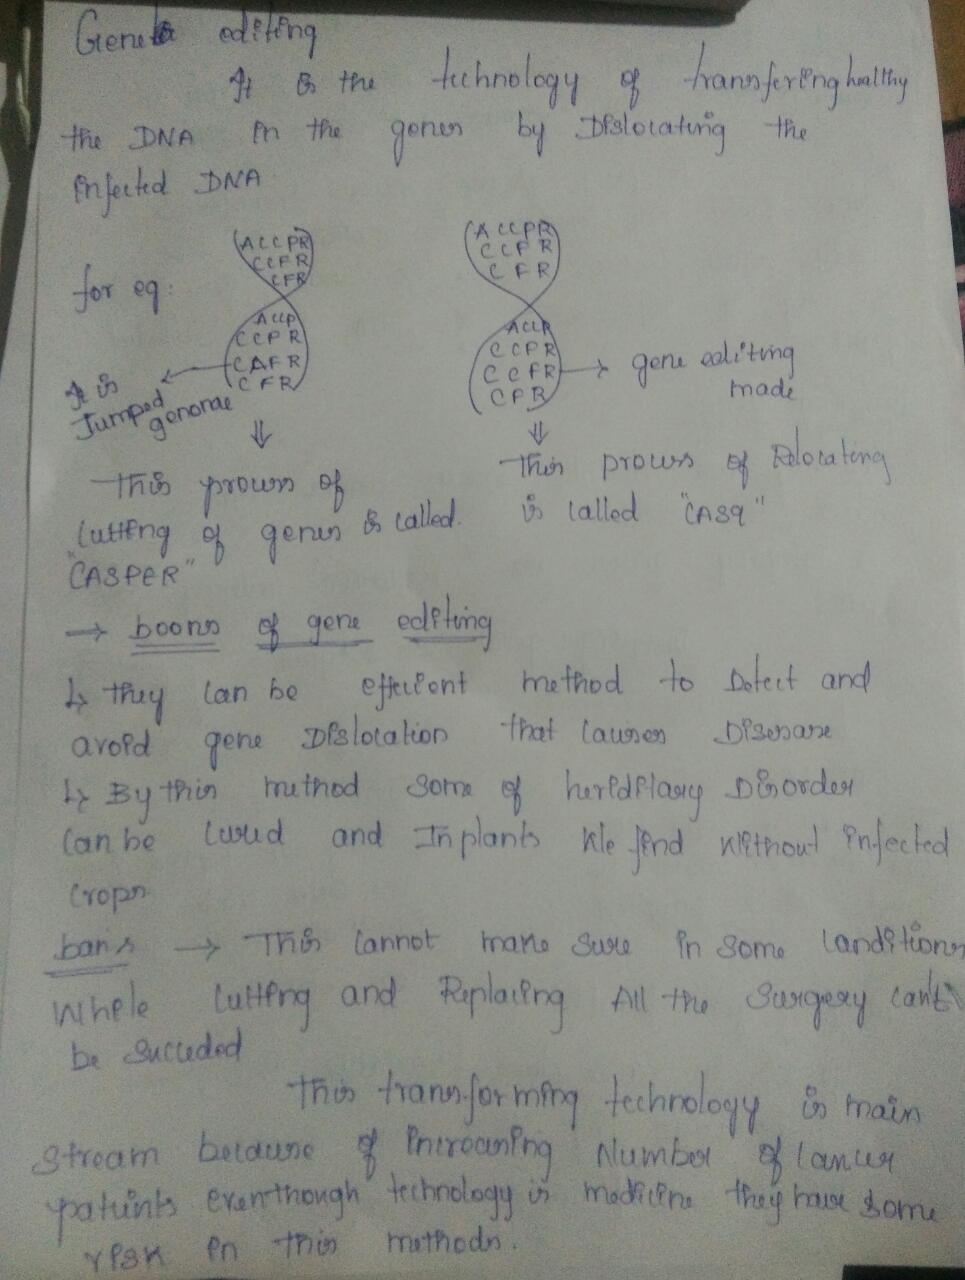 Gene editing
It is the technology of transfering healthy
the DNA in the genes by Dislocating the
infected DNA
for eg:
ACCPR
CCFR
CFR
ACCP
CCPR
CAFR
CFR
It is
Jumped
genomae
ACCPR
CCFR
CFR
ACCR
CCPR
CCFR
CFR
gene editing
made
This process of
Cutting of genes is called.
"CASPER"
This process of Relocating
is called "CAS9"
→ boons of gene editing
↳ they can be effecient method to Detect and
avoid gene Dislocation that causes Disesase
↳ By this method some of heridifary Disorder
can be cured and In plants We find without infected
crops
bans → This cannot make sure in some conditions
While cutting and Replacing All the Surgery can't
be succeded
This transforming technology is main
stream because of increasing Number of cancer
patients eventhough technology is medicine they have some
risk in this methods.